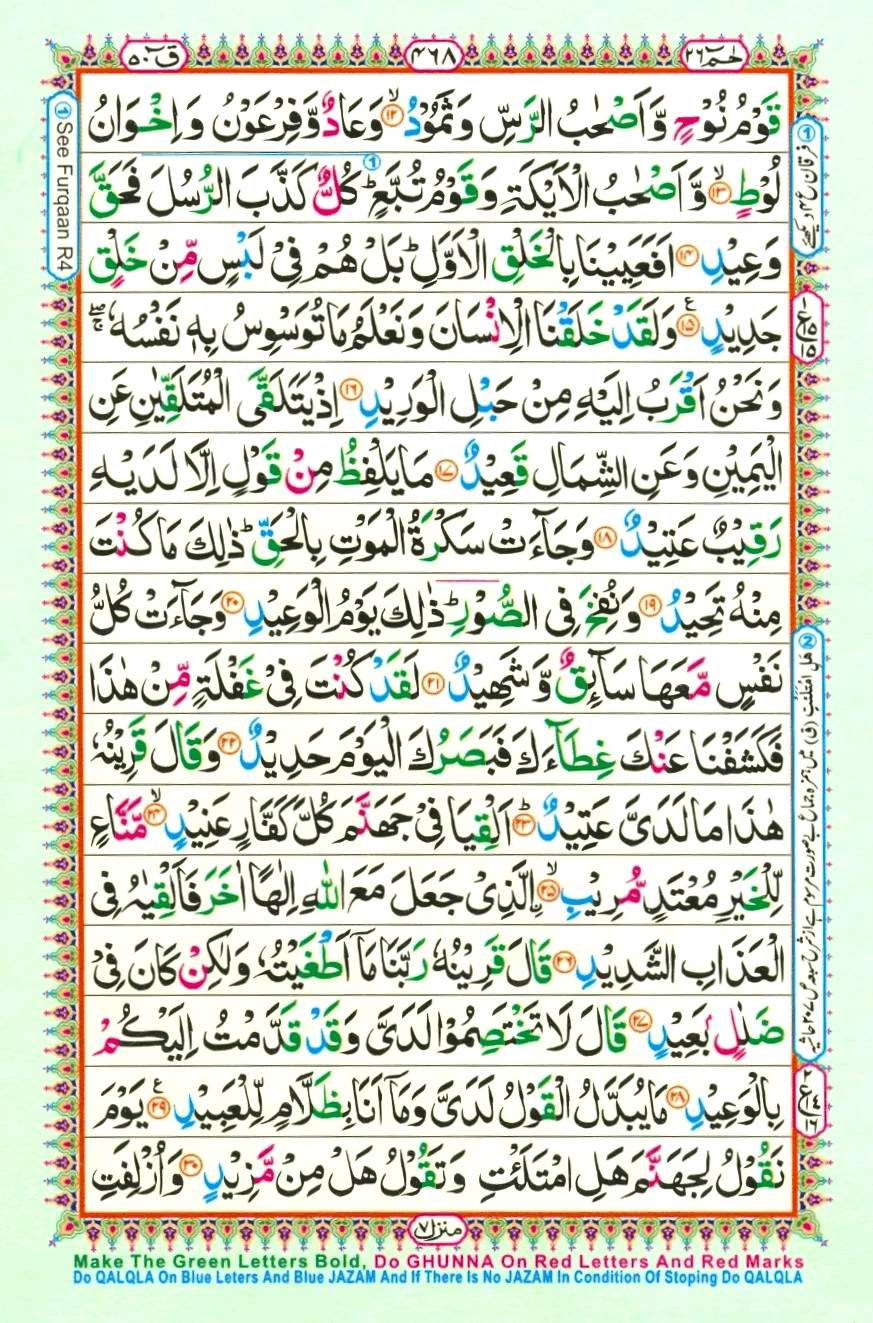 قٓ ۵۰
۴۶۸
حٰمٓ ۲۶
قَوْمُ نُوْحٍ وَّاَصْحٰبُ الرَّسِّ وَثَمُوْدُ ۙ‏﴿۱۲﴾ وَعَادٌ وَّفِرْعَوْنُ وَاِخْوَانُ
لُوْطٍ ۙ‏﴿۱۳﴾ وَّاَصْحٰبُ الْاَيْكَةِ وَقَوْمُ تُبَّعٍ ؕ كُلٌّ كَذَّبَ الرُّسُلَ فَحَقَّ
وَعِيْدِ ﴿۱۴﴾ اَفَعَيِيْنَا بِالْخَلْقِ الْاَوَّلِ ؕ بَلْ هُمْ فِىْ لَبْسٍ مِّنْ خَلْقٍ
جَدِيْدٍ ﴿۱۵﴾ وَلَقَدْ خَلَقْنَا الْاِنْسَانَ وَنَعْلَمُ مَا تُوَسْوِسُ بِهٖ نَفْسُهٗ ۖۚ
وَنَحْنُ اَقْرَبُ اِلَيْهِ مِنْ حَبْلِ الْوَرِيْدِ ﴿۱۶﴾ اِذْ يَتَلَقَّى الْمُتَلَقِّيٰنِ عَنِ
الْيَمِيْنِ وَعَنِ الشِّمَالِ قَعِيْدٌ ﴿۱۷﴾ مَا يَلْفِظُ مِنْ قَوْلٍ اِلَّا لَدَيْهِ
رَقِيْبٌ عَتِيْدٌ ﴿۱۸﴾ وَجَآءَتْ سَكْرَةُ الْمَوْتِ بِالْحَقِّ ؕ ذٰلِكَ مَا كُنْتَ
مِنْهُ تَحِيْدُ ﴿۱۹﴾ وَنُفِخَ فِى الصُّوْرِ ؕ ذٰلِكَ يَوْمُ الْوَعِيْدِ ﴿۲۰﴾ وَجَآءَتْ كُلُّ
نَفْسٍ مَّعَهَا سَآئِقٌ وَّشَهِيْدٌ ﴿۲۱﴾ لَقَدْ كُنْتَ فِىْ غَفْلَةٍ مِّنْ هٰذَا
فَكَشَفْنَا عَنْكَ غِطَآءَكَ فَبَصَرُكَ الْيَوْمَ حَدِيْدٌ ﴿۲۲﴾ وَقَالَ قَرِيْنُهٗ
هٰذَا مَا لَدَىَّ عَتِيْدٌ ؕ‏﴿۲۳﴾ اَلْقِيَا فِىْ جَهَنَّمَ كُلَّ كَفَّارٍ عَنِيْدٍ ۙ‏﴿۲۴﴾ مَّنَّاعٍ
لِّلْخَيْرِ مُعْتَدٍ مُّرِيْبِ ۙ‏﴿۲۵﴾ اۨلَّذِىْ جَعَلَ مَعَ اللّٰهِ اِلٰهًا اٰخَرَ فَاَلْقِيٰهُ فِى
الْعَذَابِ الشَّدِيْدِ ﴿۲۶﴾ قَالَ قَرِيْنُهٗ رَبَّنَا مَاۤ اَطْغَيْتُهٗ وَلٰكِنْ كَانَ فِىْ
ضَلٰلٍۢ بَعِيْدٍ ﴿۲۷﴾ قَالَ لَا تَخْتَصِمُوْا لَدَىَّ وَقَدْ قَدَّمْتُ اِلَيْكُمْ
بِالْوَعِيْدِ ﴿۲۸﴾ مَا يُبَدَّلُ الْقَوْلُ لَدَىَّ وَمَاۤ اَنَا بِظَلَّامٍ لِّلْعَبِيْدِ ﴿۲۹﴾ يَوْمَ
نَقُوْلُ لِجَهَنَّمَ هَلِ امْتَلَئْتِ وَتَقُوْلُ هَلْ مِنْ مَّزِيْدٍ ﴿۳۰﴾ وَاُزْلِفَتِ
① See Furqaan R4
① فرقان ع ۴ دیکھئے
۱ ع ۱۵ ۱۵
② هَلِ امْتَلَئْتِ (ق) میں ہمزہ
۲ ع ۱۴ ۱۶
منزل ۷
Make The Green Letters Bold, Do GHUNNA On Red Letters And Red Marks
Do QALQLA On Blue Leters And Blue JAZAM And If There Is No JAZAM In Condition Of Stoping Do QALQLA